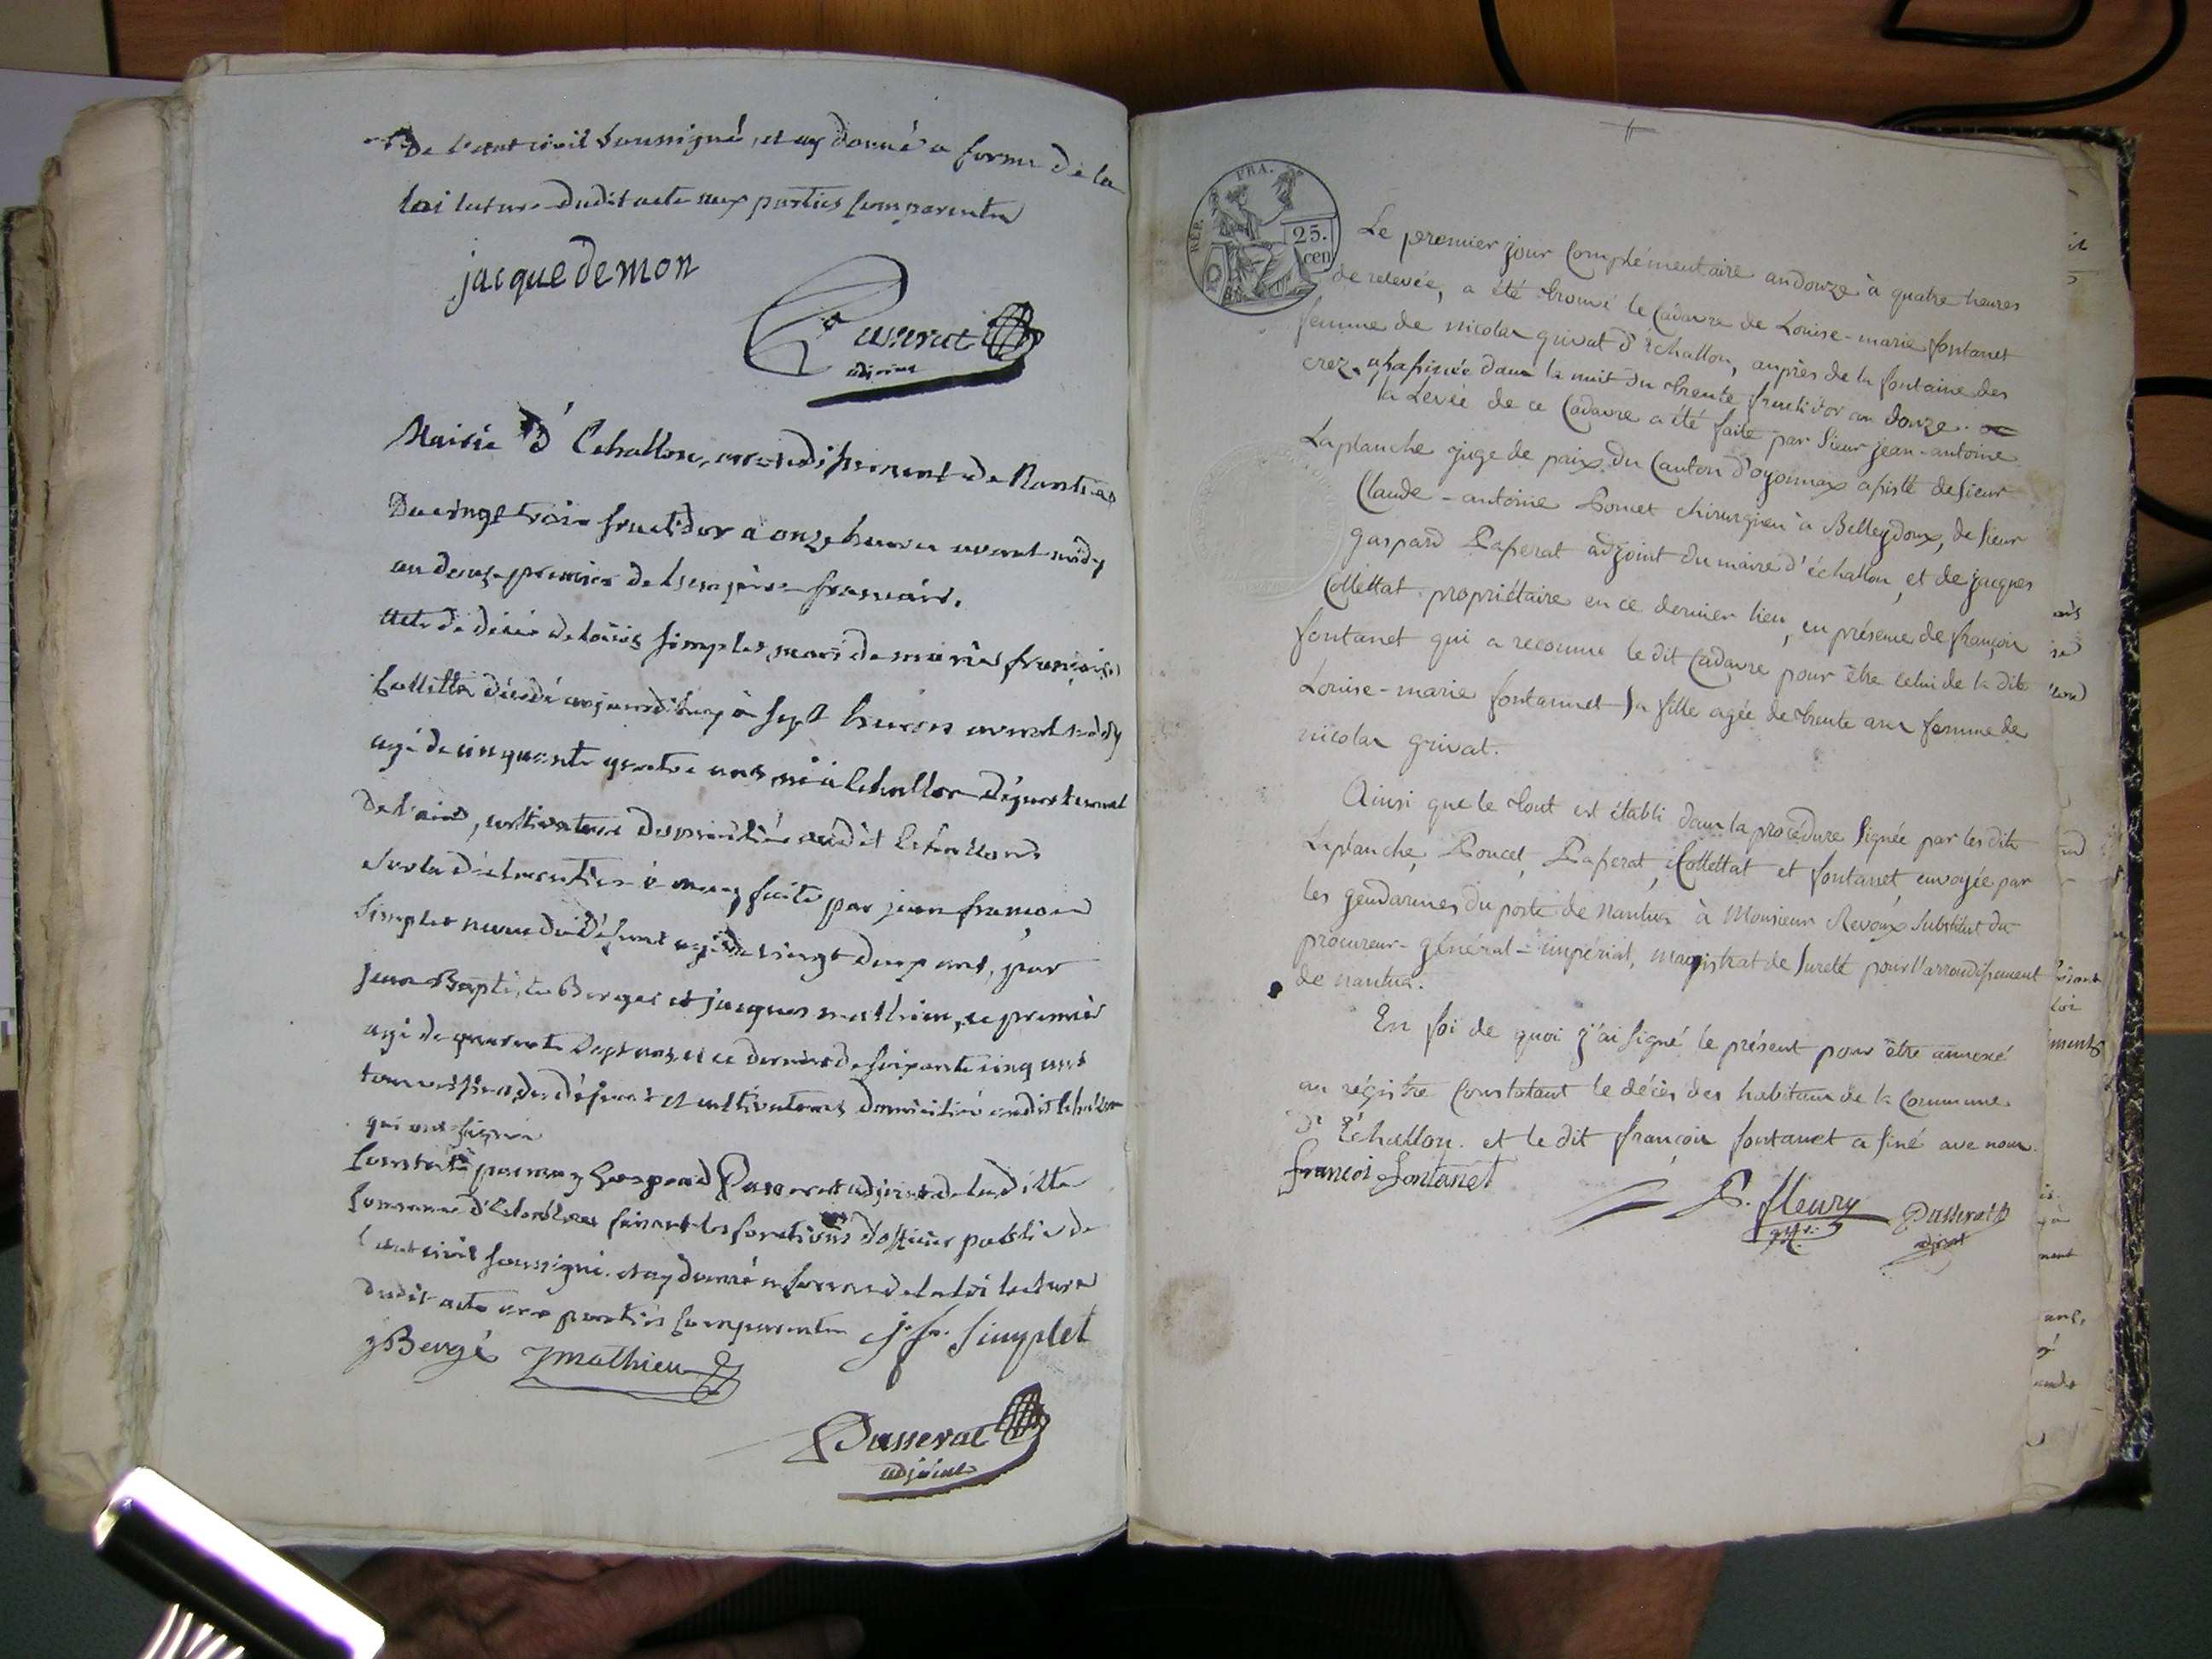 De l'etat civil soussigné, et ay donné a forme de la
loi lecture dudit acte aux parties comparentes
jacque demon
Passerat
adjoint
Mairie d'Echallon, arrondissement de Nantua
Du vingt trois fructidor à onze heures avant midy
an douze premier de l'empire français.
Acte de décès de Louis Simplet, mari de marie françoise
Collétta décédé aujourd'huy à sept heures avant midy
agé de cinquante quatre ans né à Echallon département
de l'ain, cultivateur domicilié audit Echallon
sur la déclaration à moy faite par jean françois
Simplet neveu du défunt agé de vingt deux ans, par
jean Baptiste Berger et jacques mathieu, ce premier
agé de quarante sept ans, et ce dernier de soixante cinq ans
tous voisins du défunt et cultivateurs domiciliés audit Echallon
qui ont signés
Constaté par moy Gaspard Passerat adjoint de laditte
Commune d'Echallon faisant les fonctions d'officier public de
l'etat civil soussigné. et ay donné a forme de la loi lecture
dudit acte aux parties comparentes j. fr. Simplet
j Bergé jmathieu
Passerat
adjoint
RÉP. FRA.
25.
cen
Le premier jour Complémentaire an douze à quatre heures
de relevée, a été trouvé le Cadavre de Louise-marie fontanet
femme de nicolas grivat d'échallon, auprès de la fontaine des
crez, assassinée dans la nuit du trente fructidor an douze.
la Levée de ce Cadavre a été faite par Sieur jean-antoine
Laplanche juge de paix du Canton d'oyonnax assisté de sieur
Claude-antoine Poncet chirurgien à Belleydoux, de sieur
gaspard Passerat adjoint du maire d'échallon, et de jacques
Collettat propriétaire en ce dernier lieu, en présence de françois
fontanet qui a reconnu le dit Cadavre pour être celui de la dite
Louise-marie fontannet sa fille agée de trente ans femme de
nicolas grivat.
Ainsi que le tout est établi dans la procédure signée par les dits
Laplanche, Poncet, Passerat, Collettat et fontanet envoyée par
les gendarmes du poste de nantua à Monsieur Revoux substitut du
procureur-général-impérial, magistrat de sureté pour l'arrondissement
de nantua.
En foi de quoi j'ai signé le présent pour être annexé
au régistre Constatant le décès des habitans de la Commune
d'Echallon. et le dit françois fontanet a siné ave nous
francoi fontanet
P. fleury
Passerat
adjoint